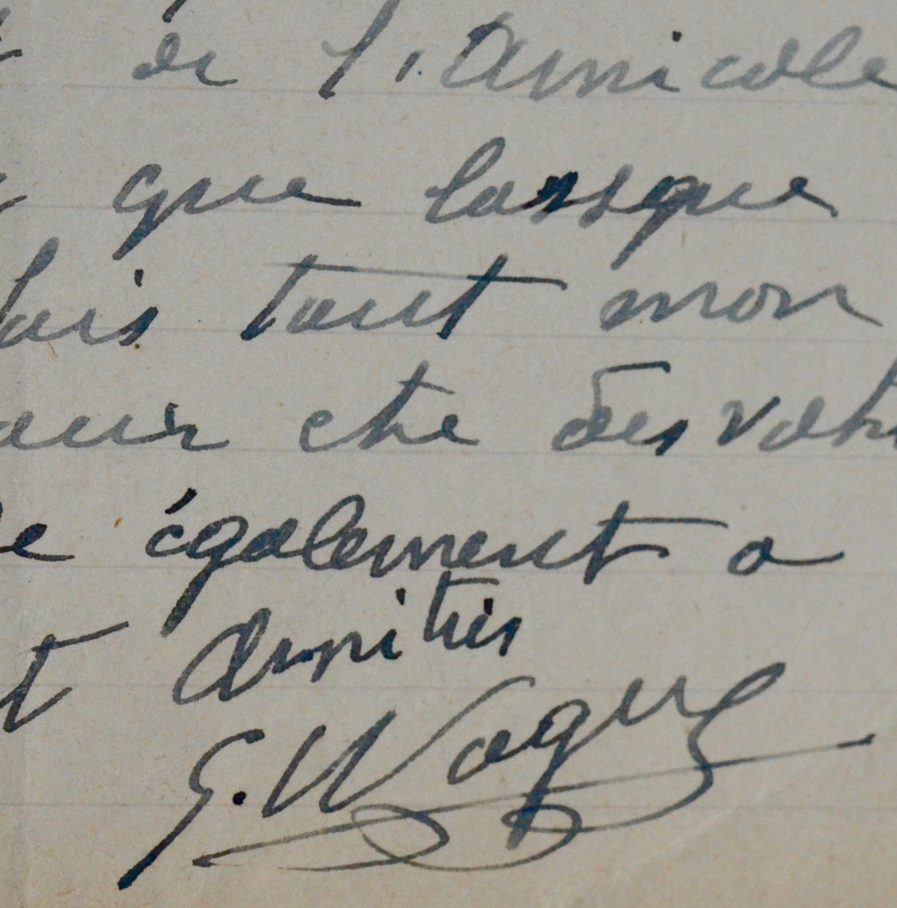 de l'Amicale
que lorsque
lais tout mon
ête des vôtr
e également a
t Amitiés
G. Wague